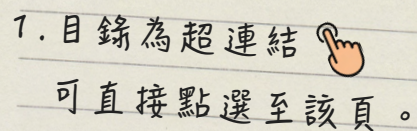 1.目錄為超連結
可直接點選至該頁。